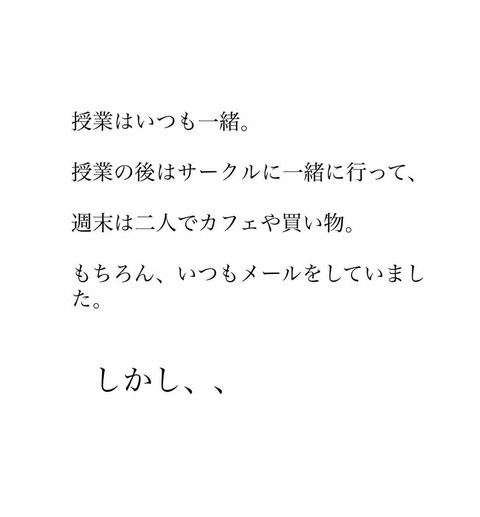 授業はいつも一緒。
授業の後はサークルに一緒に行って、
週末は二人でカフェや買い物。
もちろん、いつもメールをしていまし
た。
しかし、、